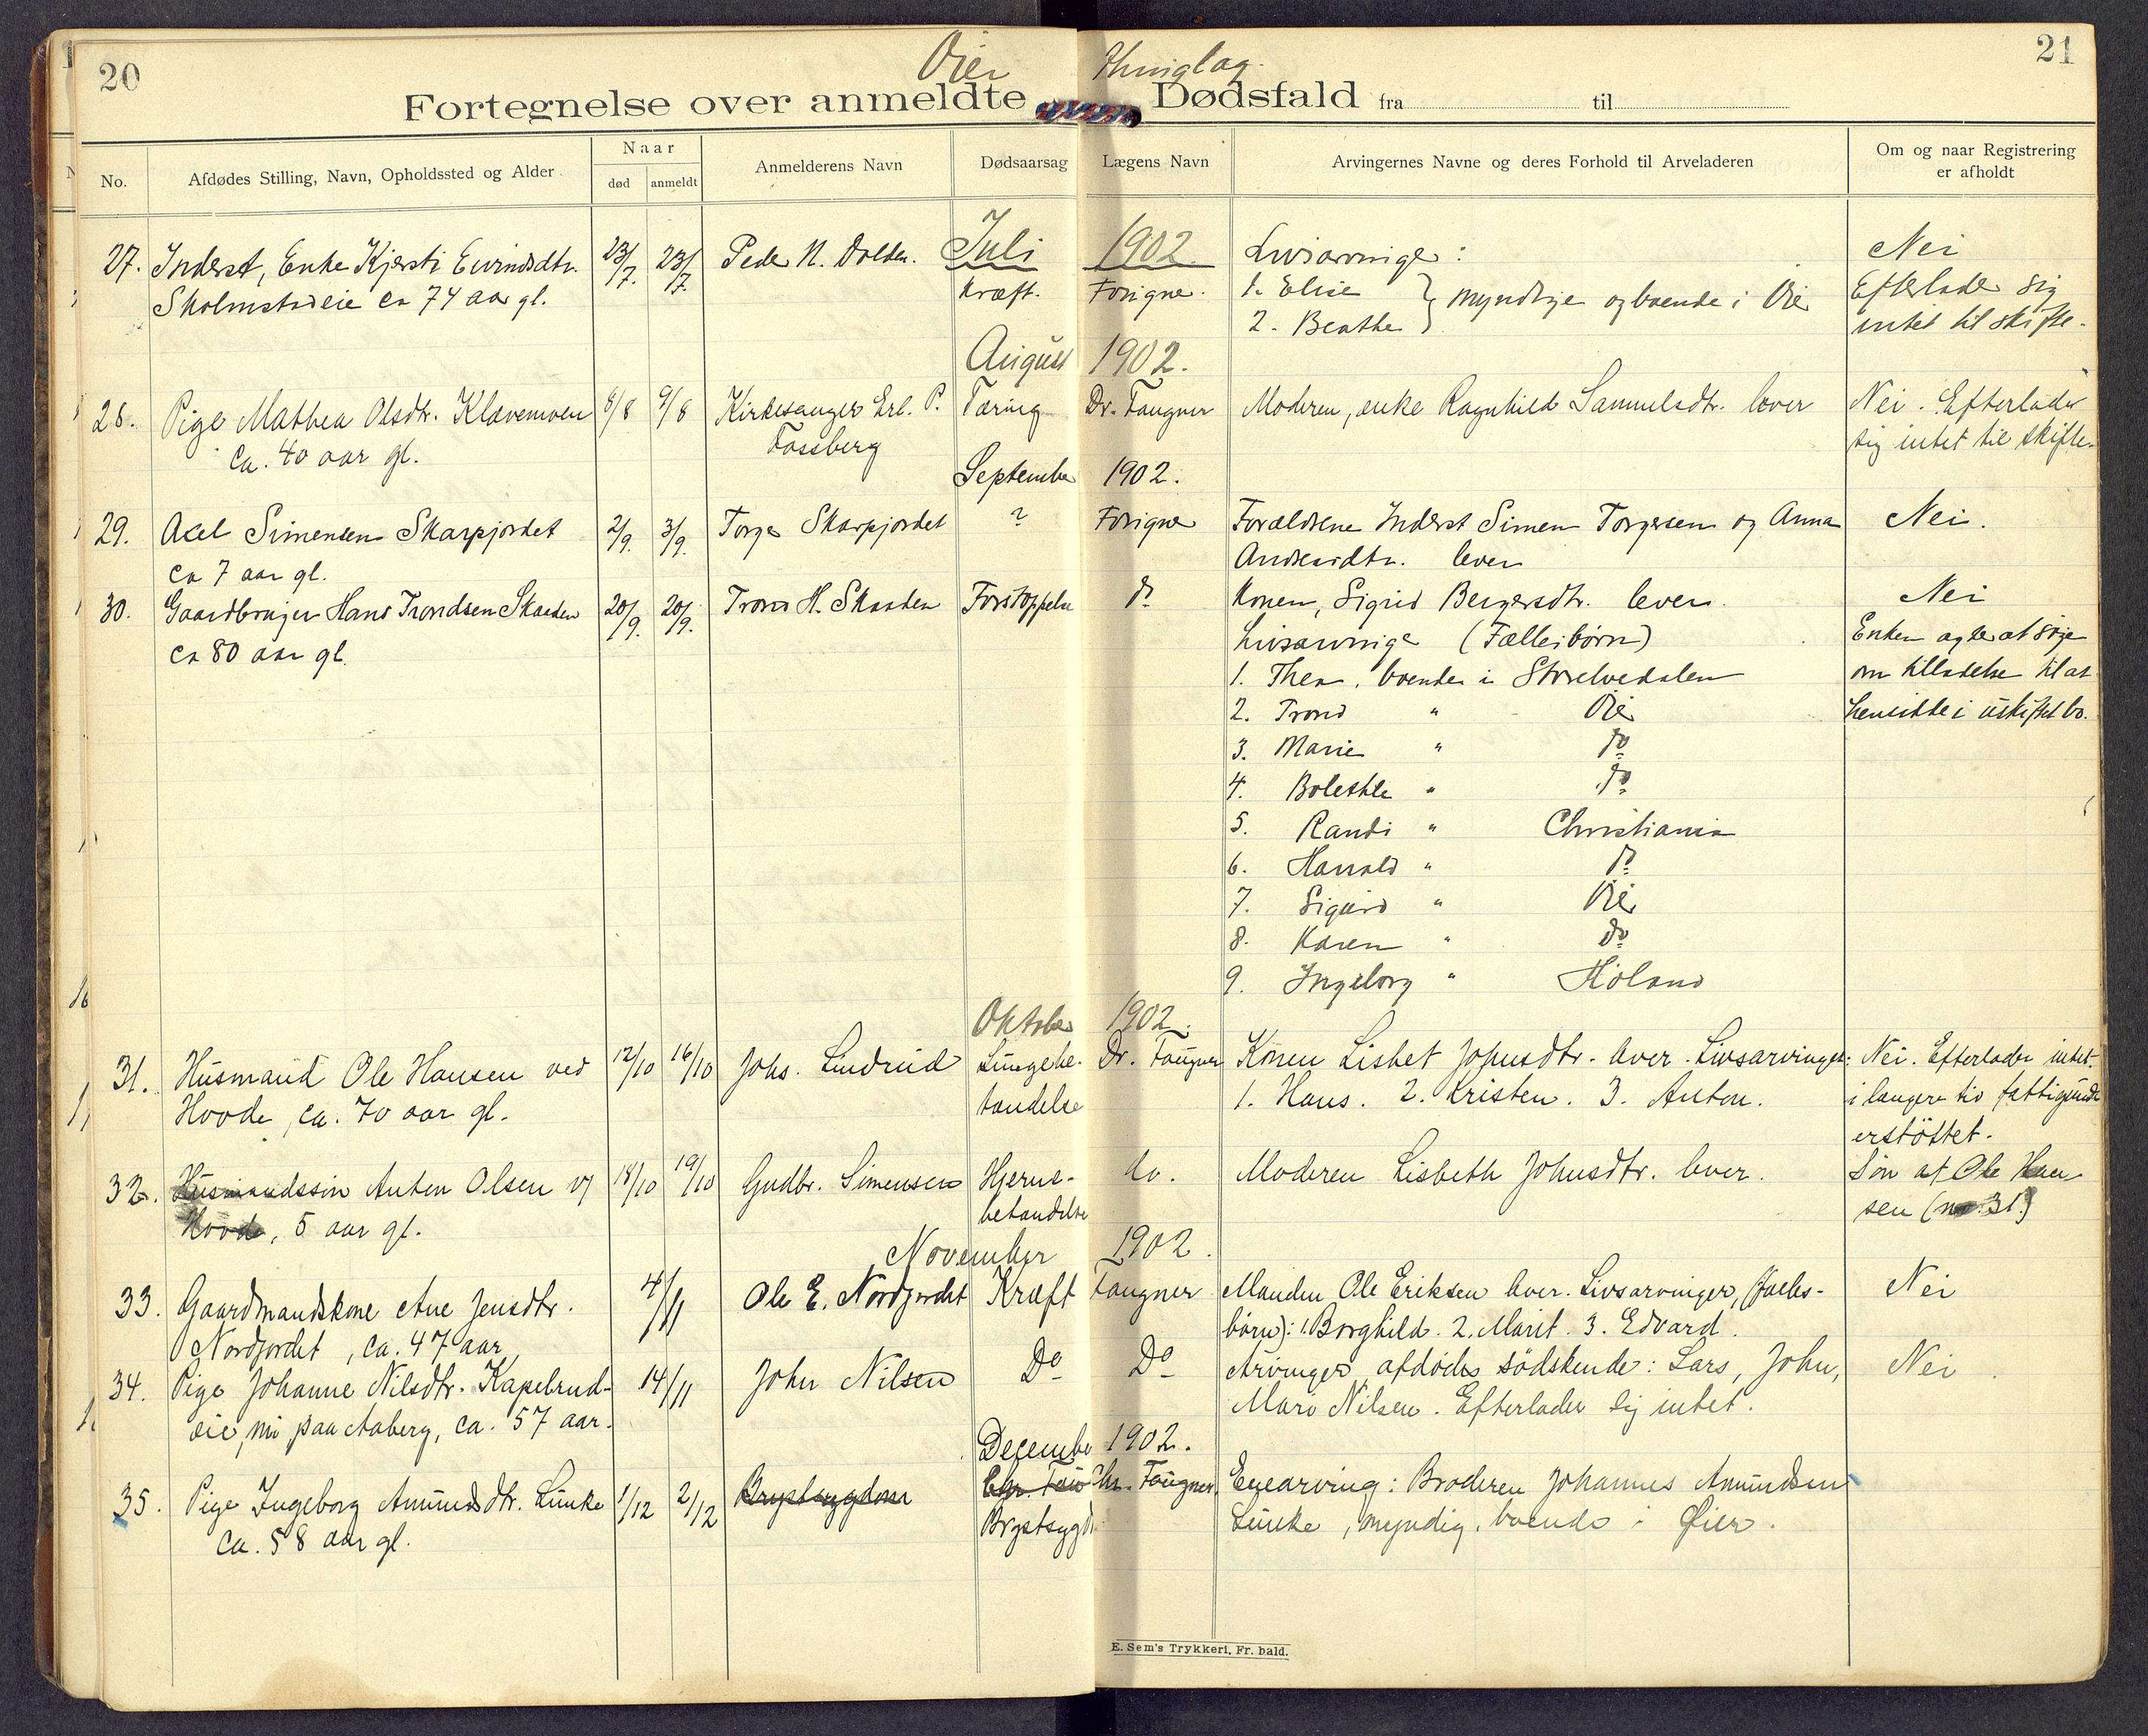 20
21
Øier Thinglag.
Fortegnelse over anmeldte Dødsfald fra til
No. Afdødes Stilling, Navn, Opholdssted og Alder Naar Anmelderens Navn Dødsaarsag Lægens Navn Arvingernes Navne og deres Forhold til Arveladeren Om og naar Registrering
død anmeldt er afholdt
Juli 1902.
27. Inderst, Enke Kjersti Eivindsdtr. 23/7. 23/7. Peder N. Dolden. Kræft. Forigne. Livsarvinger: Nei
Skolmstadeie ca 74 aar gl. 1. Elise } myndige og boende i Øier Efterlader sig
2. Beathe intet til skifte.
August 1902.
28. Pige Mathea Olsdtr. Klævemoen 8/8 9/8 Kirkesanger Erl. P. Tæring Dr. Faugner Moderen, enke Ragnhild Samuelsdtr. lever Nei. Efterlader
ca. 40 aar gl. Fossberg sig intet til skifte.
September 1902.
29. Axel Simensen Skarpjordet 2/9. 3/9. Torger Skarpjordet ? Forigne Forældrene Inderst Simen Torgersen og Anna Nei.
ca 7 aar gl. Andersdtr. lever
30. Gaardbruger Hans Trondsen Skaaden 20/9. 20/9. Trond H. Skaaden Forstoppelse do Konen, Sigrid Bergersdtr. lever. Nei
ca 80 aar gl. Livsarvinger (Fællesbørn) Enken agter at søge
1. Thea, boende i Storelvedalen om tilladelse til at
2. Trond " Øier hensidde i uskiftet bo.
3. Marie " do
4. Bolethe " do
5. Randi " Christiania
6. Harald " do
7. Sigurd " Øier
8. Karen " do
9. Ingeborg " Høland
Oktober 1902.
31. Husmand Ole Hansen ved 12/10 16/10 Johs. Lindrud Lungebe- Dr. Faugner Konen Lisbet Johnsdtr. lever. Livsarvinger: Nei. Efterlader intet.
Hovde, ca. 70 aar gl. tændelse 1. Hans. 2. Kristen. 3. Anton. i længere tid fattigunder-
erstøttet.
32. Husmandssøn Anton Olsen v/ 18/10 19/10 Gudbr. Simensen Hjerne- do. Moderen Lisbeth Johnsdtr. lever. Søn af Ole Han-
Hovde, 5 aar gl. betændelse sen (no. 31.)
November 1902.
33. Gaardmandskone Ane Jensdtr. 4/11 Ole E. Nordjordet Kræft Faugner Manden Ole Eriksen lever. Livsarvinger, (fælles- Nei
Nordjordet, ca. 47 aar børn): 1. Borghild. 2. Marit. 3. Edvard.
34. Pige Johanne Nilsdtr. Kapelrud- 14/11 John Nilsen Do Do Arvinger afdødes sødskende: Lars, John, Nei
eie, nu paa Aaberg, ca. 57 aar. Mari Nilsen. Efterlader sig intet.
December 1902.
35. Pige Ingeborg Amundsdtr. Lunke 1/12 2/12 Brystsygdom Chr. Fau Chr. Faugner. Enearving: Broderen Johannes Amundsen
ca. 58 aar gl. Brystsygd. Lunke, myndig, boende i Øier.
E. Sem's Trykkeri, Fr.hald.